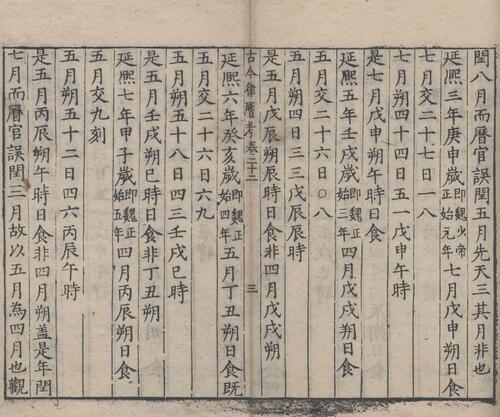 閏八月而曆官誤閏五月先天三其月非也
延熈三年庚申歲即魏火帝正始元年七月戊申朔日食
七月交二十七日一八
七月朔四十四日五一戊申午時
是七月戊申朔午時日食
延熈五年壬戌歲即魏正始三年四月戊戌朔日食
五月交二十六日〇八
五月朔四日三三戊辰辰時
是五月戊辰朔辰時日食非四月戊戌朔
古今律曆考卷二十二 三
延熈六年癸亥歲即魏正始四年五月丁丑朔日食既
五月交二十六日六九
五月朔五十八日四三壬戌巳時
是五月壬戌朔巳時日食非丁丑朔
延熈七年甲子歲即魏正始五年四月丙辰朔日食
五月交九刻
五月朔五十二日四六丙辰午時
是五月丙辰朔午時日食非四月朔蓋是年閏
七月而曆官誤閏三月故以五月為四月也觀